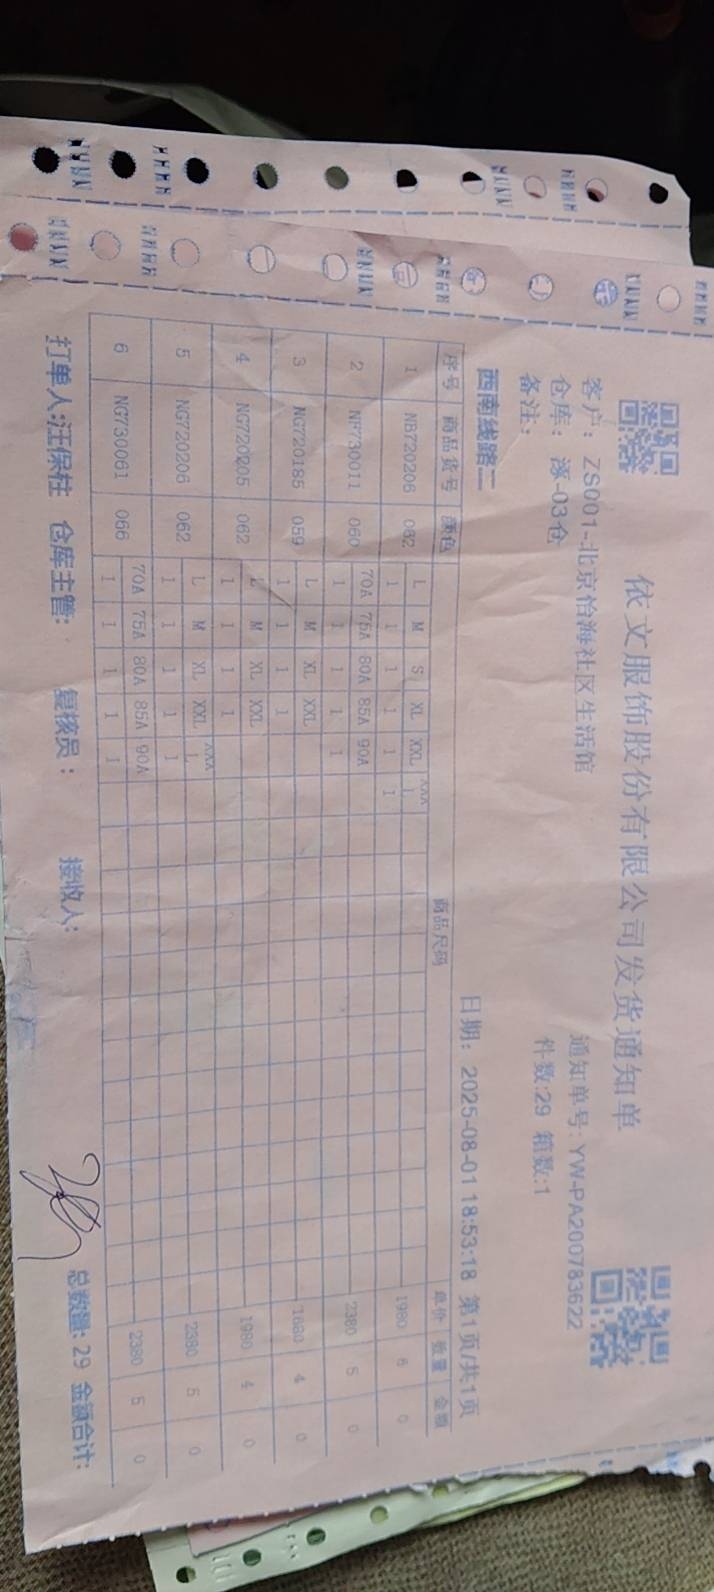 依文服饰股份有限公司发货通知单
客户: ZS001-北京怡海社区生活馆 通知单号: YW-PA200783622
仓库: 涿-03仓 件数:29 箱数:1
备注:
西南线路二 日期: 2025-08-01 18:53:18 第1页/共1页
序号 商品货号 颜色 商品尺码 单价 数量 金额
L M S XL XXL
1 NB720206 062 1 1 1 1 1 1 1980 6 0
70A 75A 80A 85A 90A
2 NF730011 060 1 1 1 1 1 2380 5 0
L M XL XXL
3 NG720185 059 1 1 1 1 1680 4 0
L M XL XXL
4 NG720205 062 1 1 1 1 1980 4 0
L M XL XXL
5 NG720206 062 1 1 1 1 1 2380 5 0
70A 75A 80A 85A 90A
6 NG730061 066 1 1 1 1 1 2380 5 0
打单人:汪保柱 仓库主管: 复核员: 接收人: 总数量: 29 金额合计: